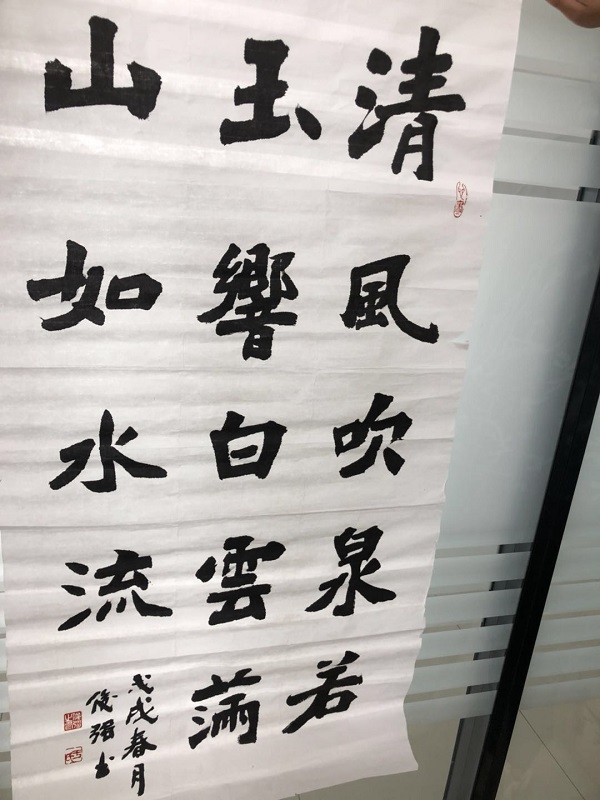 清風吹泉若
玉響白雲滿
山如水流
戊戌春月
俊强書